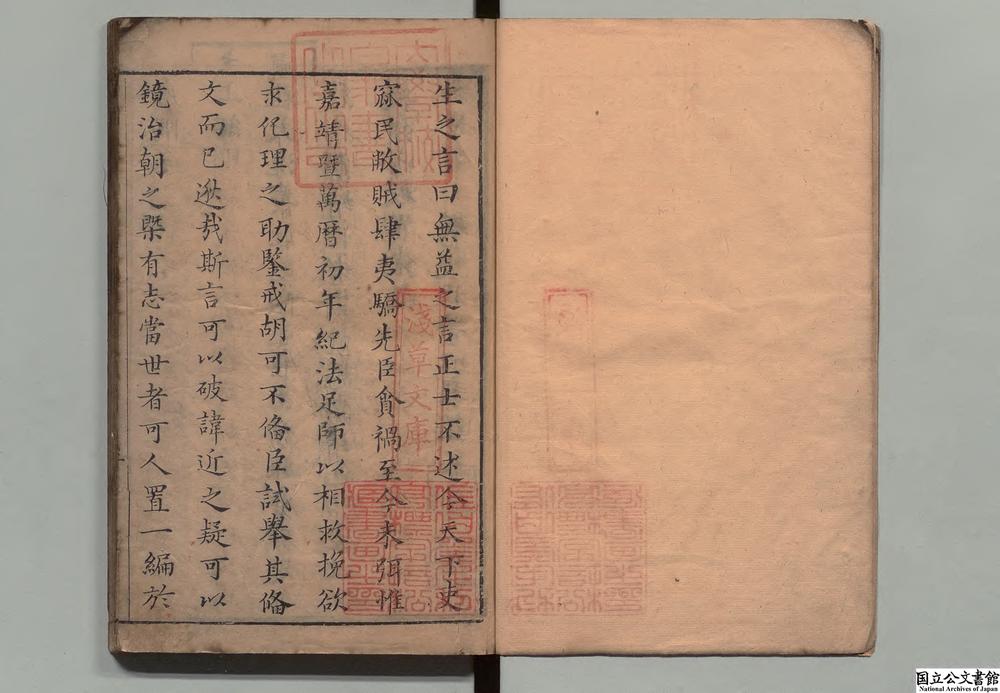 生之言曰無益之言正士不述今天下吏
寐民敝賊肆夷驕先臣貪禍至今未弭惟
嘉靖暨萬曆初年紀法足師以相救挽欲
求化理之助鑒戒胡可不俻臣試舉其俻
文而已逖㢤斯言可以破諱近之疑可以
鏡治朝之槩有志當世者可人置一編於
淺草文庫
国立公文書館
National Archives of Japan